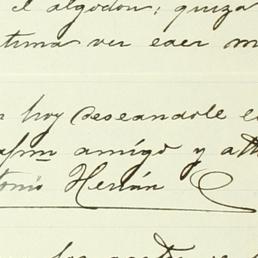 el algodon; quiza
tima ver caer m
hoy deseandole
afmo amigo y att
tonio Herrán